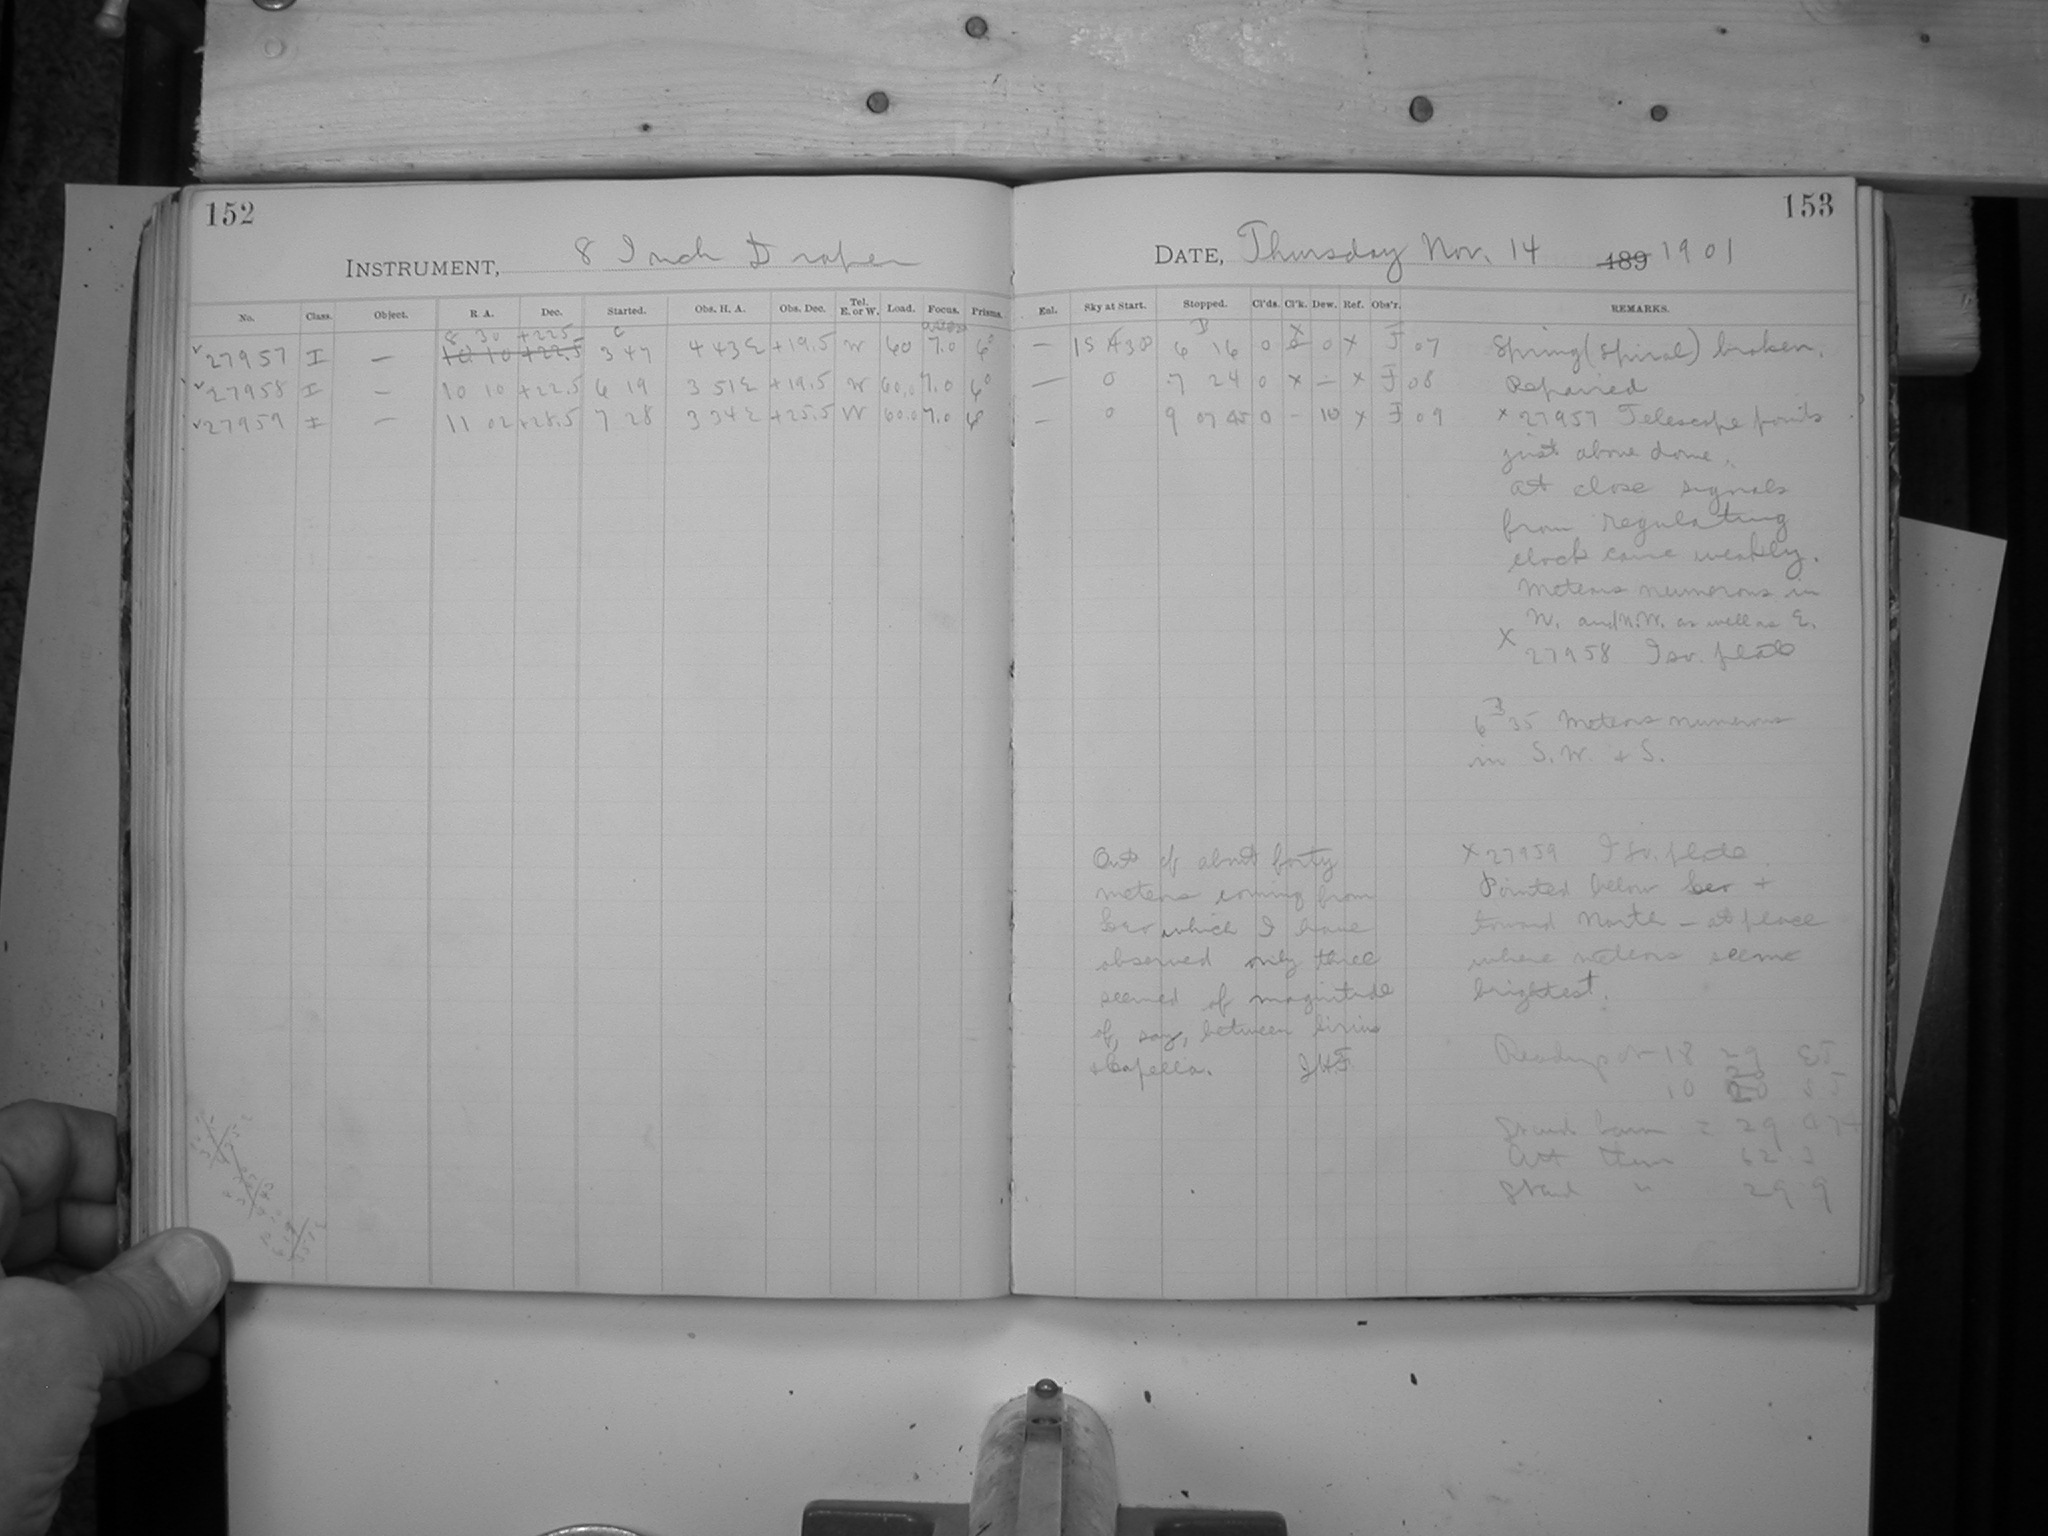 152
INSTRUMENT, 8 Inch Draper
No. Class. Object. R. A. Dec. Started. Obs. H. A. Obs. Dec. Tel. E. or W. Load. Focus. Prisms.
8 30 +22.5
27957 I — 10 10 +22.5 3 47 4 43 E +19.5 W 60 7.0 6°
27958 I — 10 10 +22.5 6 19 3 51 E +19.5 W 60.0 7.0 6°
27959 I — 11 02 +28.5 7 28 3 34 E +25.5 W 60.0 7.0
153
DATE, Thursday Nov. 14 189 1901
Enl. Sky at Start. Stopped. Cl'ds. Cl'k. Dew. Ref. Obs'r. REMARKS.
— 6 16 0 0 x J 07 Spring (spiral) broken.
— 0 7 24 0 x — x J 08 Repaired
— 0 9 07 0 – 10 x J 09 x 27957 Telescope points
just above dome.
at close signals
from regulating
clock came weakly.
Meteors numerous in
N. and N.W. as well as E.
X
27958 Iso. plate
6 35 Meteors numerous
in S.W. + S.
Out of about forty
meteors coming from
Leo which I have
observed only three
seemed of magnitude
of, say, between Sirius
+ Capella. J.H.F.
x 27959 Iso. plate
Pointed below Leo +
toward North – at place
where meteors seeme
brightest.
Readings at 18 29
10
29 974
62
29 9